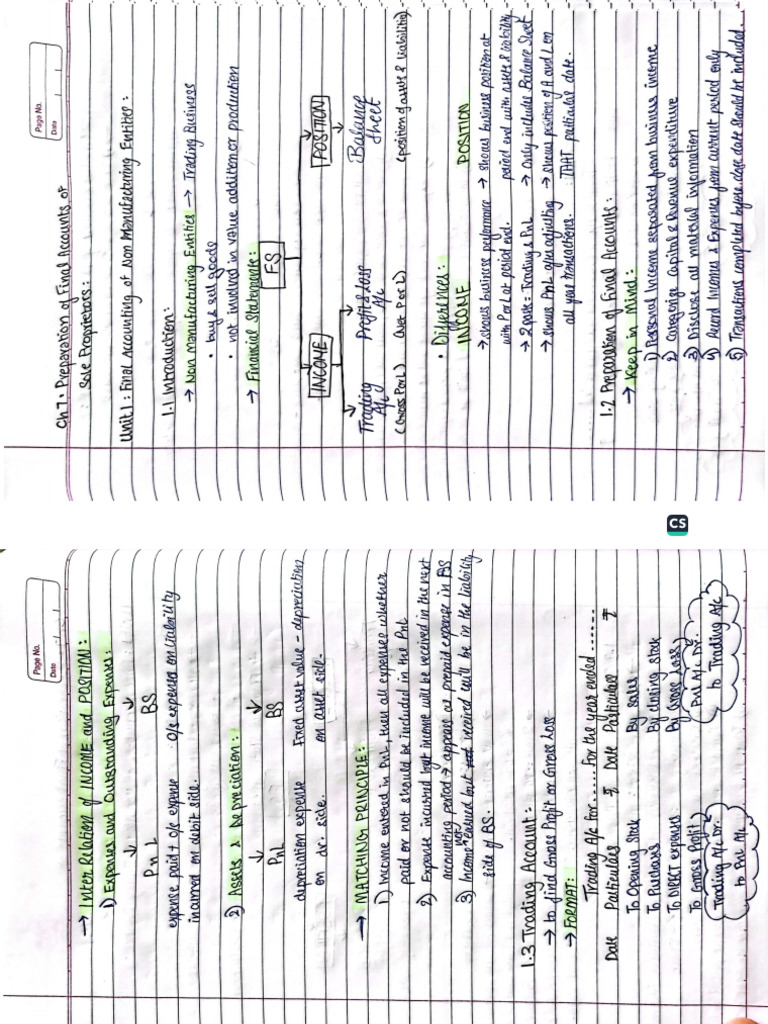 Page No.
Date
Ch 7 · Preparation of Final Accounts of
Sole Proprietors :
Unit 1 : Final Accounting of Non Manufacturing Entities :
1.1 Introduction :
→ Non manufacturing Entities → Trading Business
• buy & sell goods
• not involved in value addition or production
→ Financial Statements :
FS
INCOME POSITION
Trading A/c Profit & Loss A/c Balance Sheet
(Gross P or L) (Net P or L) (position of assets & liabilities)
• Differences :
INCOME POSITION
→ shows business performance → shows business position at
with P or L at period end. period end with assets & liability
→ 2 parts = Trading & PnL → Only includes Balance Sheet
→ shows PnL after adjusting → shows position of A and L on
all year transactions. THAT particular date.
1.2 Preparation of Final Accounts :
→ Keep in Mind :
1) Personal Income separated from business income
2) Categorize Capital & Revenue expenditure
3) Disclose all material information
4) Record Incomes & Expenses from current period only
5) Transactions completed before date should be included.
CS
Page No.
Date
→ Inter Relation of INCOME and POSITION :
1) Expenses and Outstanding Expenses :
PnL BS
expense paid + o/s expense o/s expenses on liability
incurred on debit side.
2) Assets & Depreciation :
PnL BS
depreciation expense Fixed asset value - depreciation
on dr. side. on asset side.
→ MATCHING PRINCIPLE :
1) Income entered in PnL, then all expenses whether
paid or not should be included in the PnL
2) Expense incurred but income will be received in the next
accounting period → appears as prepaid expense in BS
3) Income not earned but received will be in the liability
side of BS.
1.3 Trading Account :
→ to find Gross Profit or Gross Loss
→ FORMAT :
Trading A/c for ..... For the year ended ......
Date Particulars ₹ Date Particulars ₹
To Opening Stock By sales
To Purchases By closing stock
To DIRECT expenses By Gross Loss)
To Gross Profit) PnL A/c Dr.
Trading A/c Dr. to Trading A/c
to PnL A/c